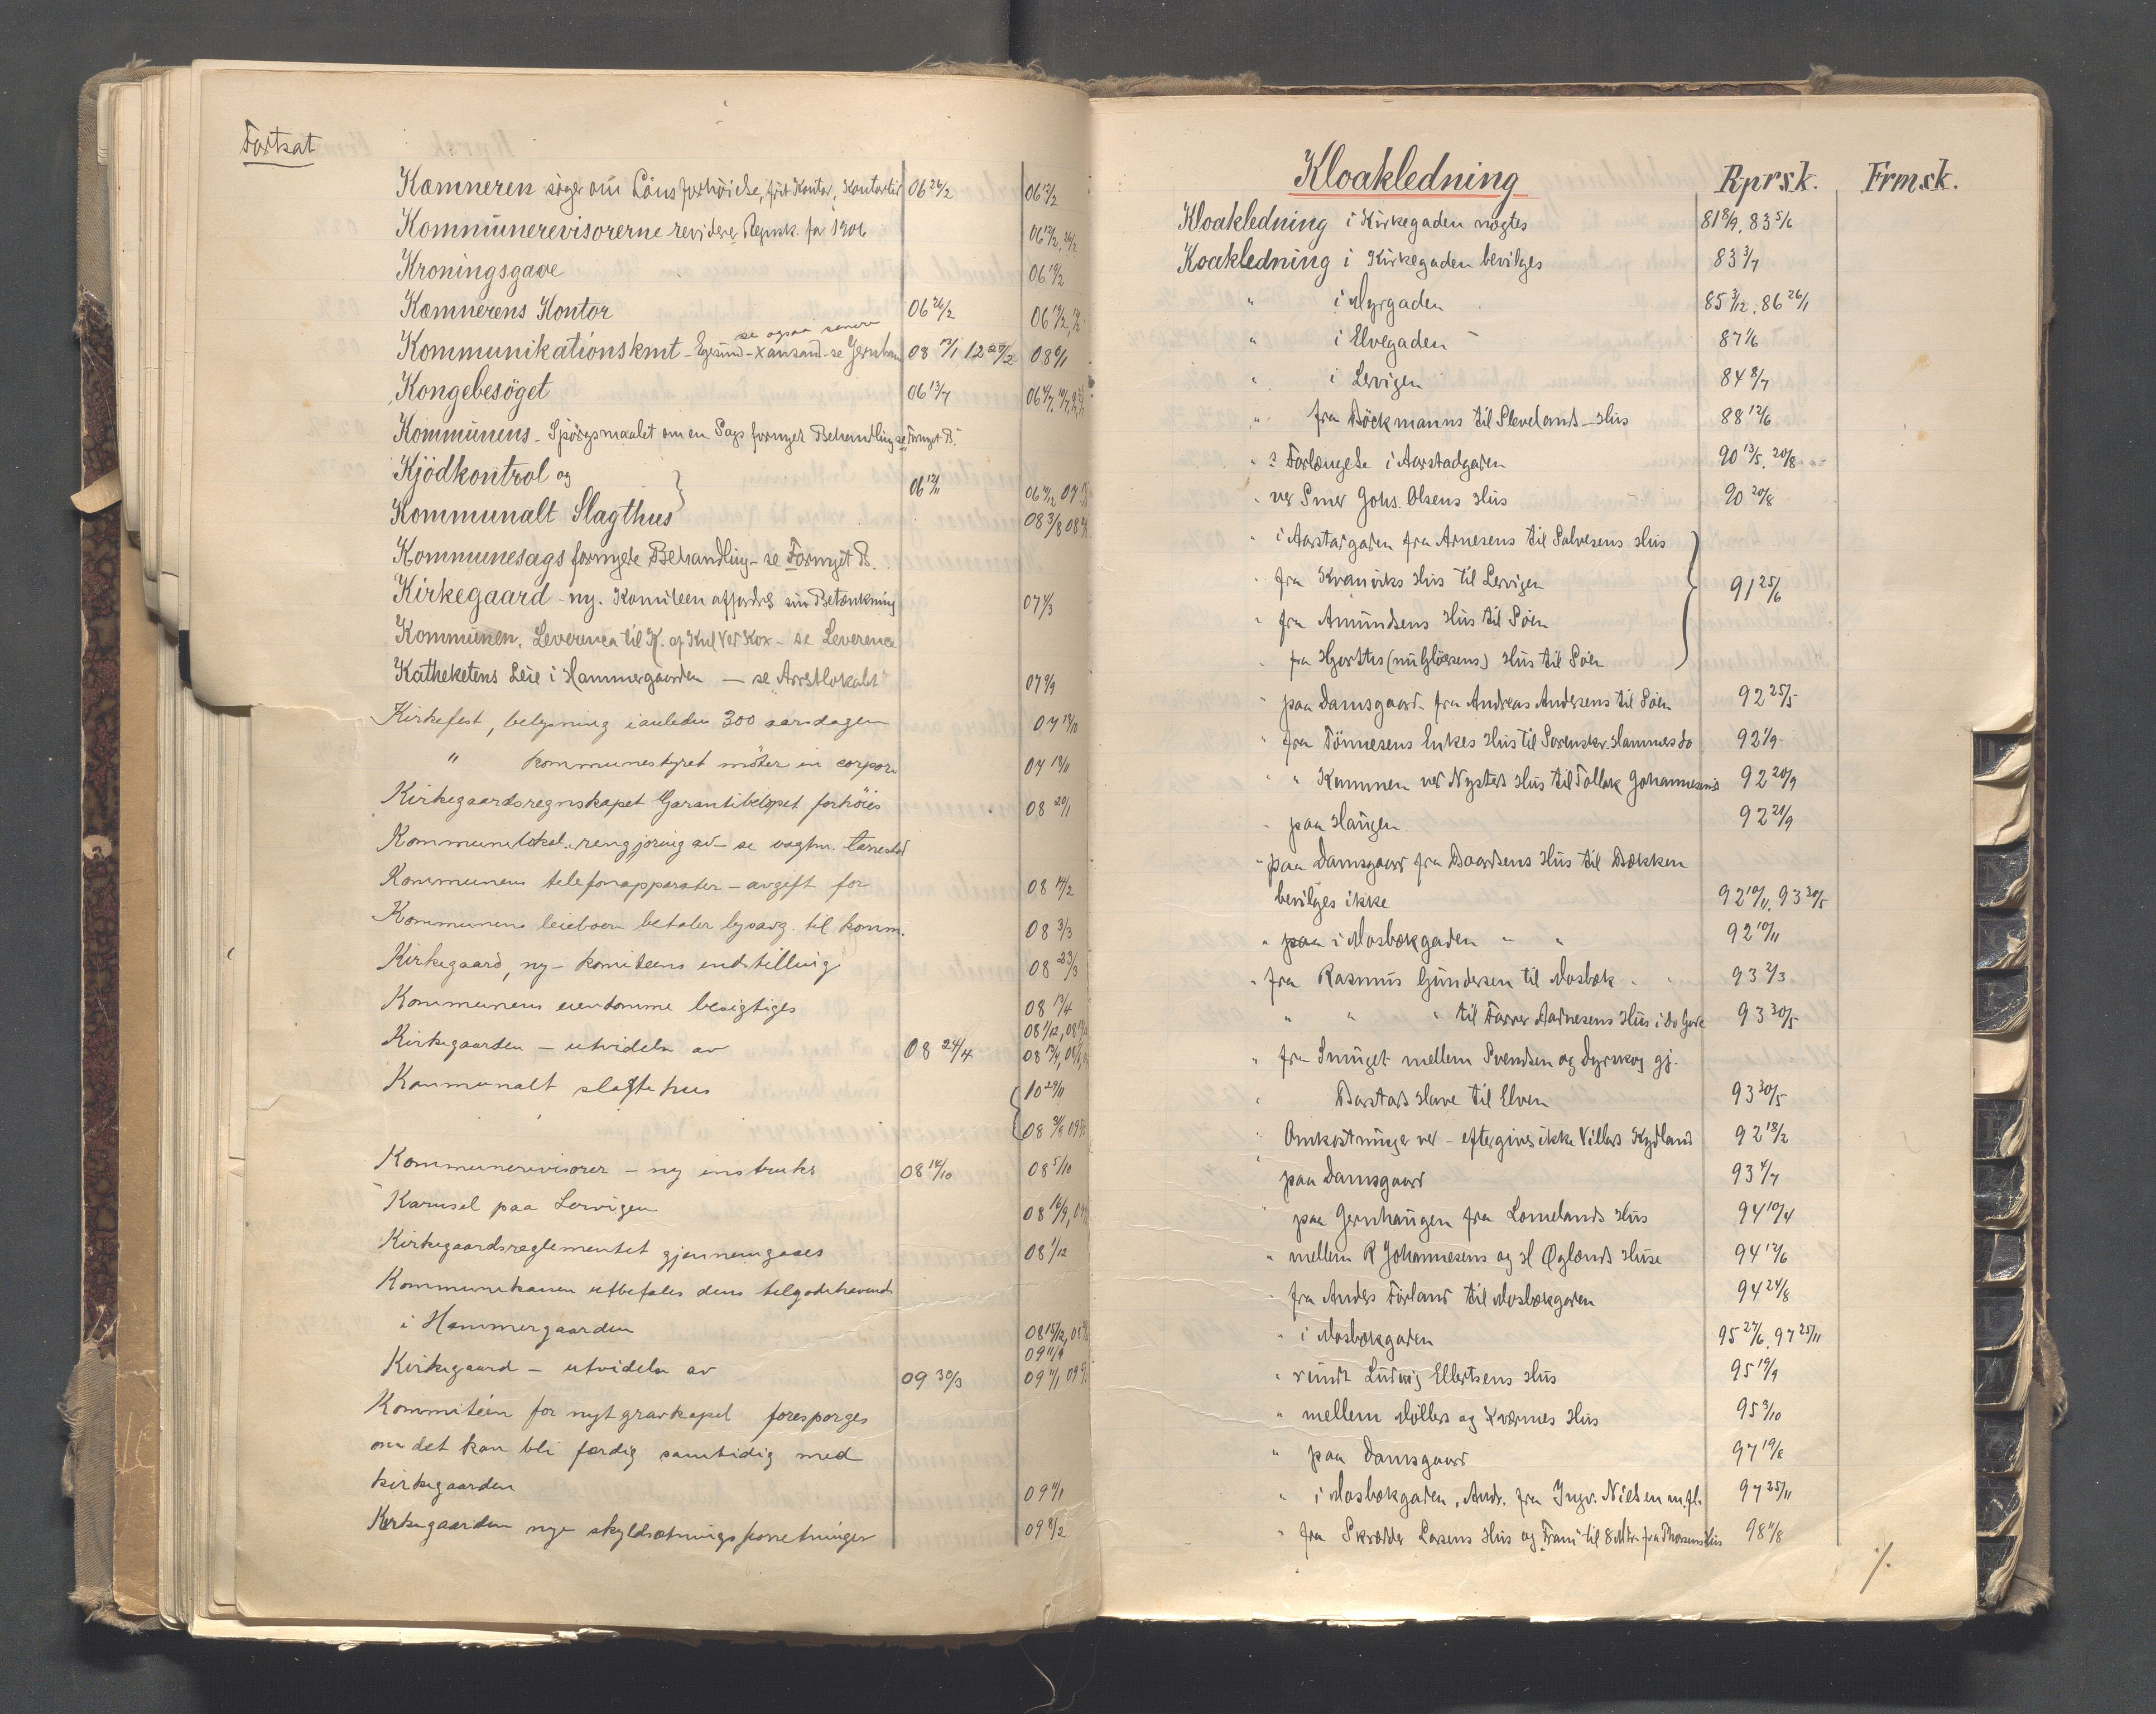 Fortsat
Kæmneren söger om Lönsforhöielse, frit Kontor, Kontortid 06 26/2 06 12/2
Kommunerevisorerne reviderer Regnsk. for 1906 06 12/2, 26/2
Kroningsgave 06 19/2
Kæmnerens Kontor 06 26/2 06 12/2
se ogsaa senere
Kommunikationskmt - Egersund - Xansand - se Jernbane 08 13/1 12 27/2 08 6/1
Kongebesöget 06 13/7 06 4/7
Kommunens - Spörgsmaalet om en Sags fornyet Behandling se Fornyet B.
Kjödkontrol og 06 12/11
Kommunalt Slagthus 08 3/8
Kommunesags fornyede Behandling - se Fornyet B.
Kirkegaard - ny. Komiteen affordres sin Betænkning 07 4/3
Kommunen. Leverence til K. af Kul Ved Kox - se Leverence
Katheketens Leie i Hammergaarden — se Arrestlokalet 07 9/9
Kirkefest, belysning i anledn 300 aarsdagen 07 14/10
" kommunestyret möter in corpore 07 18/11
Kirkegaardsregnskapet Garantibelöpet forhöies 08 20/1
Kommunelokal. rengjöring av - se vagtm. Tarnestad
Kommunens telefonapparater - avgift for 08 17/2
Kommunens leieboere betaler lysavg. til komm. 08 3/3
Kirkegaard, ny - komiteens indstilling 08 23/3
Kommunens eiendomme besigtiges 08 13/4
08 1/12,
Kirkegaarden - utvidelse av 08 24/4 08 13/4,
Kommunalt slagtehus 10 29/11
08 3/8 09
Kommunerevisorer - ny instruks 08 14/10 08 5/10
Karusel paa Lervigen 08 16/9,
Kirkegaardsreglementet gjennemgaaes 08 1/12
Kommunekassen utbetales dens tilgodehavende
i Hammergaarden 08 15/12,
09 11/9
Kirkegaard - utvidelse av 09 30/3 09 11/1
Kommitéen for nyt gravkapel foresporges
om det kan bli færdig samtidig med
kirkegaarden 09 11/1
Kirkegaarden nye skyldsætningsforretninger 09 8/2
Kloakledning Rprsk. Frmsk.
Kloakledning i Kirkegaden nægtes 81 8/9, 83 5/6
Koakledning i Kirkegaden bevilges 83 3/7
" i Myrgaden 85 3/12, 86 26/1
" i Elvegaden 87 1/6
" i Lervigen 84 8/7
" fra Böckmanns til Sleveland's Hus 88 12/6
" s Forlængelse i Aarstadgaden 90 13/5, 20/8
" ved Smed Johs. Olsens Hus 90 20/8
" i Aarstadgaden fra Arnesens til Salvesens Hus
" fra Kvanviks Hus til Lervigen 91 25/6
" fra Amundsens Hus til Söen
" fra Hjorths (nu Gloersens) Hus til Söen
" paa Damsgaard fra Andreas Andersens til Söen 92 25/5
" fra Tönnesens Enkes Hus til Sorenskr. Hammers do 92 1/9
" " Kummen ved Nysteds Hus til Tollak Johannesens 92 20/9
" paa Haugen 92 21/9
" paa Damsgaard fra Baardsens Hus til Bækken
bevilges ikke 92 10/11, 93 30/5
" paa i Mosbækgaden " " 92 10/11
" fra Rasmus Gundersen til Mosbæk " " 93 2/3
" " " til Farver Aadnesens Hus i do Gade 93 30/5
" fra Smuget mellem Svendsen og Dyrskog gj.
" Barstads Have til Elven 93 30/5
" Omkostninger ved - eftergives ikke Villads Kydland 92 18/2
" paa Damsgaard 93 4/7
" paa Jernhaugen fra Lomelands Hus 94 10/4
" mellem R Johannesens og H Øglænds Huse 94 12/6
" fra Anders Förland til Mosbækgaden 94 24/8
" i Mosbækgaden 95 27/6, 97 25/11
" rundt Ludvig Ellertsens Hus 95 19/9
" mellem Möllers og Kværnes Hus 95 3/10
" paa Damsgaard 97 19/8
" i Mosbækgaden, Andr. fra Ingv. Nielsen m.fl. 97 25/11
" fra Skrædder Larsens Hus og "Fram" til 8 Mtr. fra Thorsens Hus 98 11/8
%